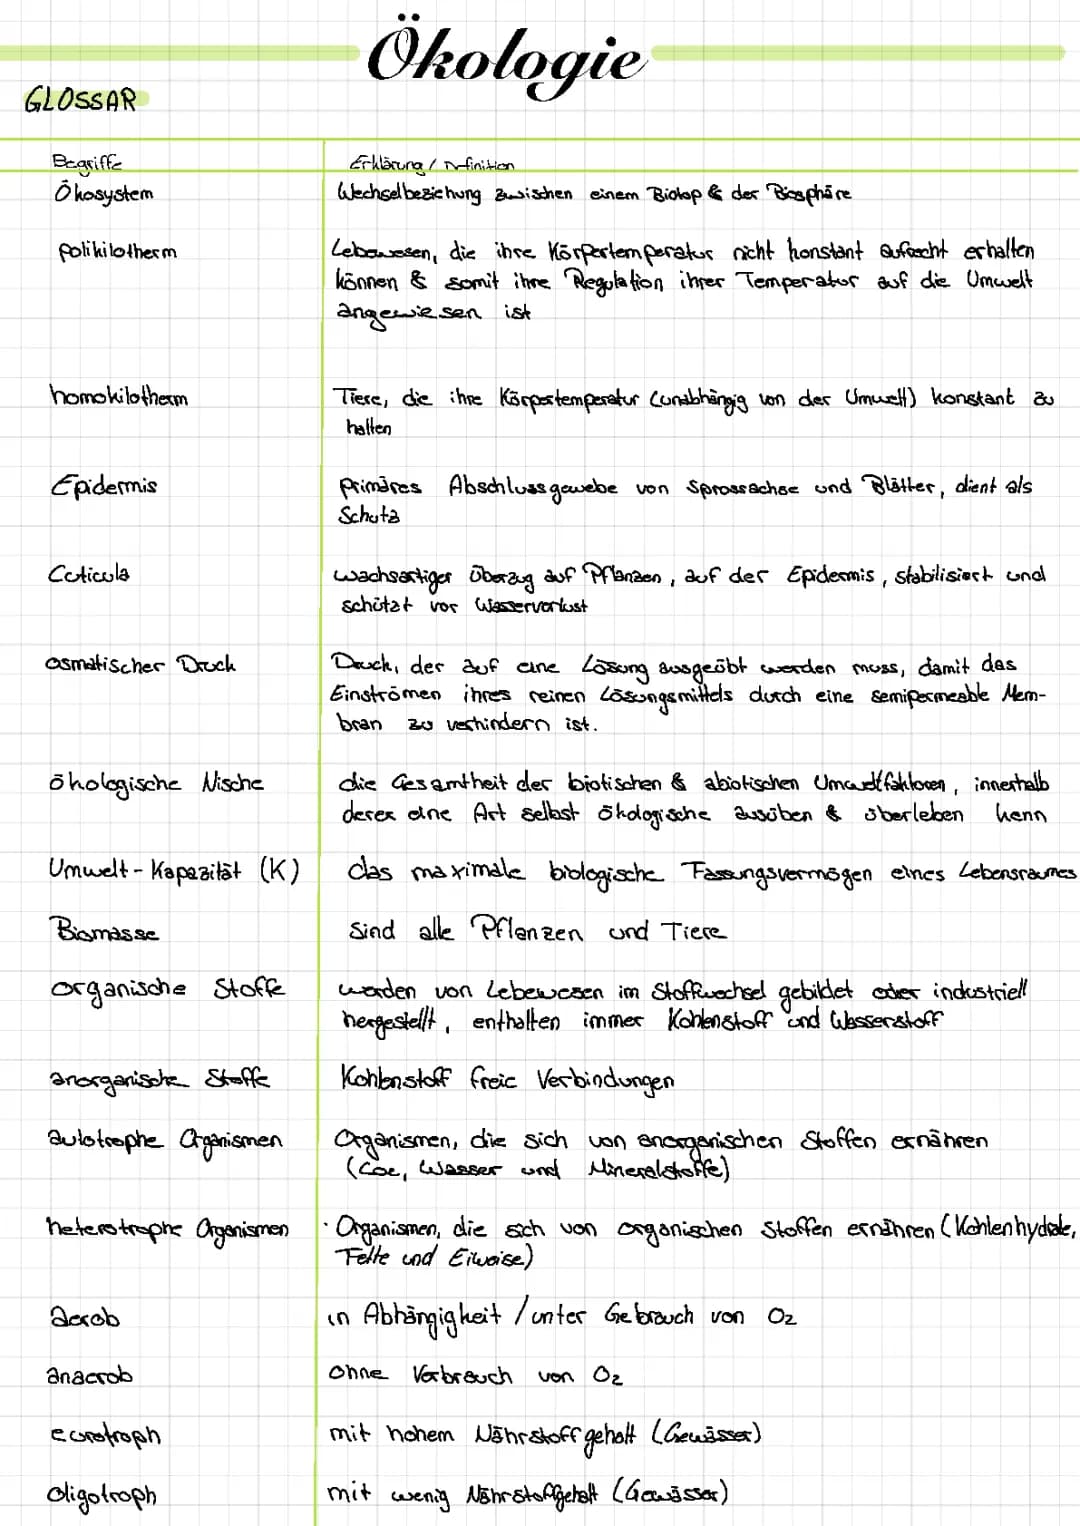 Ökologie
GLOSSAR
Begriffe Erklärung / Definition
Ökosystem Wechselbeziehung zwischen einem Biotop & der Biosphäre
polikilotherm Lebewesen, die ihre Körpertemperatur nicht konstant aufrecht erhalten
können & somit ihre Regulation ihrer Temperatur auf die Umwelt
angewiesen ist
homokilotherm Tiere, die ihre Körpertemperatur (unabhängig von der Umwelt) konstant zu
halten
Epidermis primäres Abschlussgewebe von Sprossachse und Blätter, dient als
Schutz
Cuticula wachsartiger Überzug auf Pflanzen, auf der Epidermis, stabilisiert und
schützt vor Wasserverlust
osmotischer Druck Druck, der auf eine Lösung ausgeübt werden muss, damit das
Einströmen ihres reinen Lösungsmittels durch eine semipermeable Mem-
bran zu verhindern ist.
ökologische Nische die Gesamtheit der biotischen & abiotischen Umweltfaktoren, innerhalb
derer eine Art selbst ökologische ausüben & überleben kann
Umwelt-Kapazität (K) das maximale biologische Fassungsvermögen eines Lebensraumes
Biomasse sind alle Pflanzen und Tiere
organische Stoffe werden von Lebewesen im Stoffwechsel gebildet oder industriell
hergestellt, enthalten immer Kohlenstoff und Wasserstoff
anorganische Stoffe Kohlenstoff freie Verbindungen
autotrophe Organismen Organismen, die sich von anorganischen Stoffen ernähren
(CO2, Wasser und Mineralstoffe)
heterotrophe Organismen · Organismen, die sich von organischen Stoffen ernähren (Kohlenhydrate,
Fette und Eiweise)
aerob in Abhängigkeit / unter Gebrauch von O2
anaerob ohne Verbrauch von O2
eurotroph mit hohem Nährstoffgehalt (Gewässer)
oligotroph mit wenig Nährstoffgehalt (Gewässer)